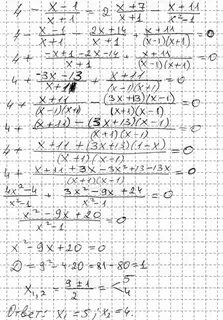 4 - \frac{x-1}{x+1} = 2 \frac{x+7}{x+1} - \frac{x+11}{x^2-1}
4 - \frac{x-1}{x+1} - \frac{2x+14}{x+1} + \frac{x+11}{(x-1)(x+1)} = 0
4 + \frac{-x+1-2x-14}{x+1} + \frac{x+11}{(x-1)(x+1)} = 0
4 + \frac{-3x-13}{x+1} + \frac{x+11}{(x-1)(x+1)} = 0
4 + \frac{x+11}{(x-1)(x+1)} - \frac{(3x+13)(x-1)}{(x+1)(x-1)} = 0
4 + \frac{(x+11)-(3x+13)(x-1)}{(x+1)(x-1)} = 0
4 + \frac{x+11+(3x+13)(1-x)}{(x+1)(x-1)} = 0
4 + \frac{x+11+3x-3x^2+13-13x}{(x+1)(x-1)} = 0
\frac{4x^2-4}{x^2-1} + \frac{3x^2-9x+24}{x^2-1} = 0
\frac{x^2-9x+20}{x^2-1} = 0
x^2-9x+20=0
D=9^2-4·20=81-80=1
x_{1,2} = \frac{9±1}{2} = < 5 4
Ответ: x_1=5; x_2=4.